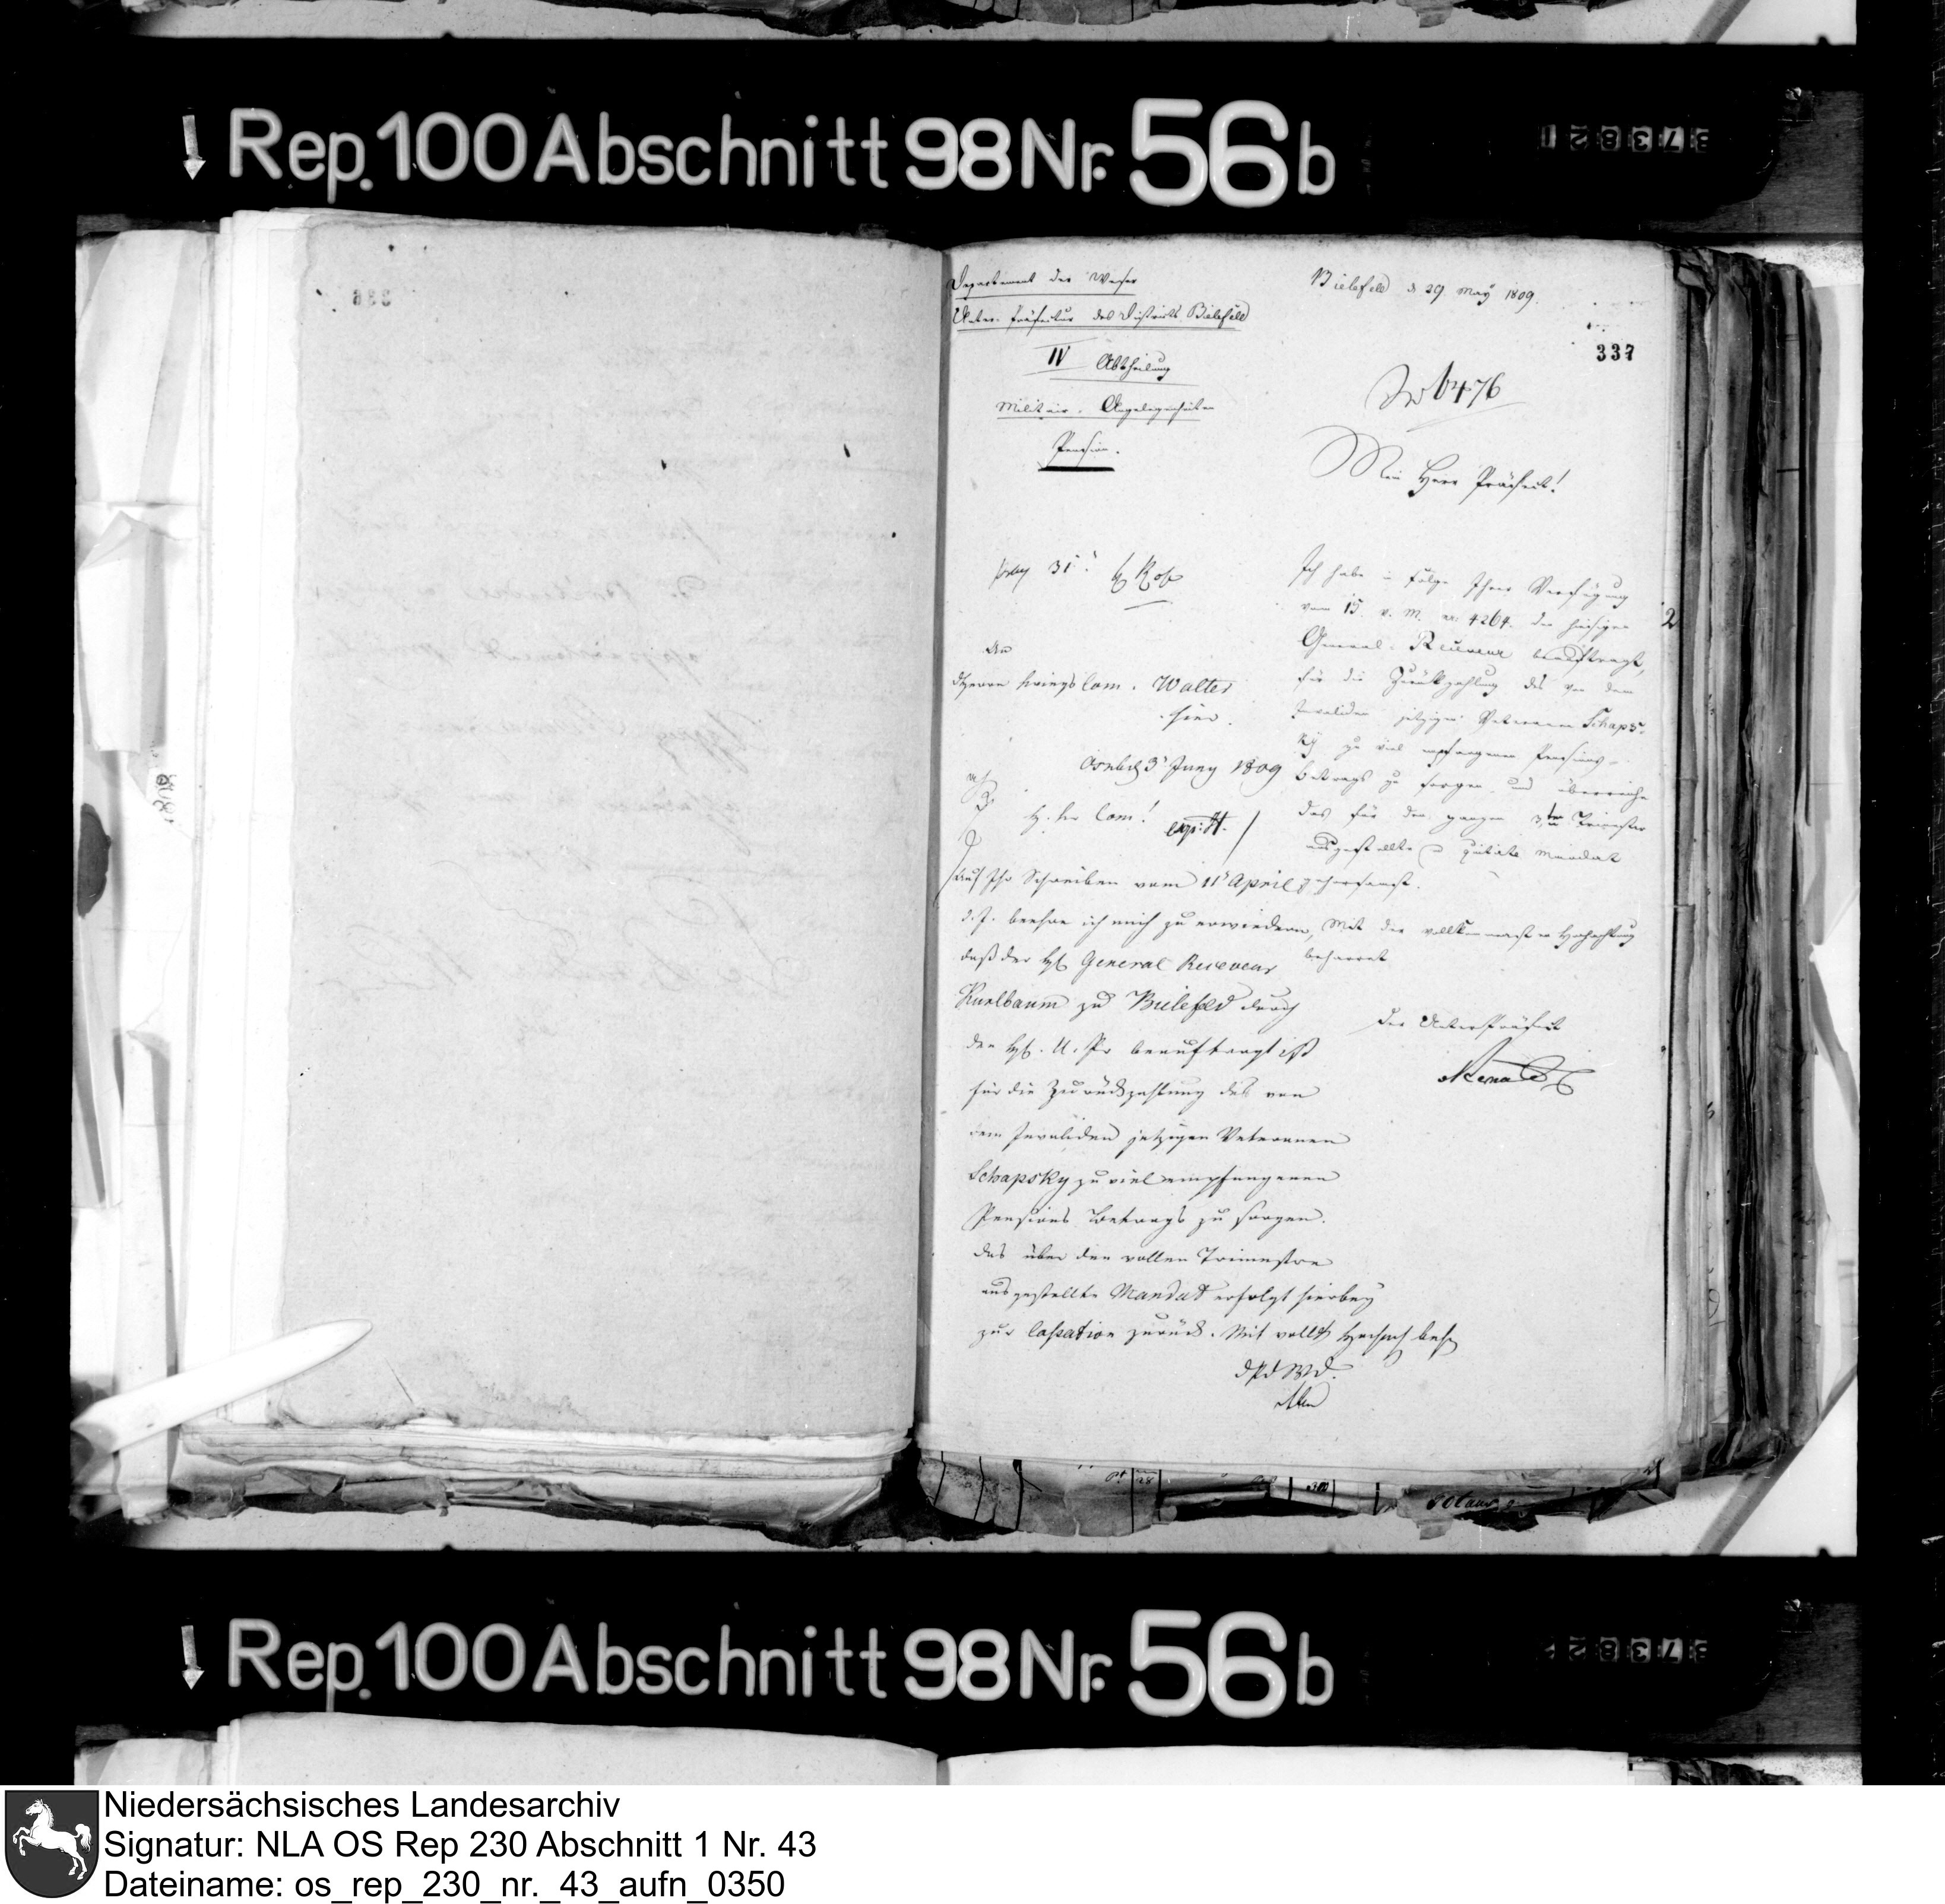 Rep. 100 Abschnitt 98 Nr. 56b
Departement der Weser
Unter-Präfectur des Districts Bielefeld
IV Abtheilung
Militair-Angelegenheiten
Pension.
Bielefeld d 29 May 1809.
337
6476
Mein Herr Präfect!
31
Ich habe in Folge Ihrer Verfügung
vom 15. v. M. nr. 4264. den hiesigen
General-Receveur beauftragt,
für die Zurückzahlung des von dem
Invaliden jetzigen Veteranen Schaps-
ky zu viel empfangenen Pensions-
Betrags zu sorgen, und überreiche
das für den ganzen Trimester
ausgestellte Mandat
gehorsamst.
Mit der vollkommensten Hochachtung
beharret
Der UnterPräfect
An
d Herrn Kriegs Com. Walter
hier.
Osnbrck 3 Juny 1809
H. Kr Com!
exp: H.
Auf Ihr Schreiben vom 11 April
d. J. beehre ich mich zu erwiedern,
daß der H General Receveur
Kuelbaum zu Bielefeld durch
den H. U. Pr beauftragt ist
für die Zurückzahlung des von
dem Invaliden jetzigen Veteranen
Schapsky zu viel empfangenen
Pensions Betrags zu sorgen.
Das über den vollen Trimestre
ausgestellte Mandat erfolgt hierbey
zur Cassation zurück. Mit vollk Hochach
d P d W D.
Rep. 100 Abschnitt 98 Nr. 56b
Niedersächsisches Landesarchiv
Signatur: NLA OS Rep 230 Abschnitt 1 Nr. 43
Dateiname: os_rep_230_nr._43_aufn_0350